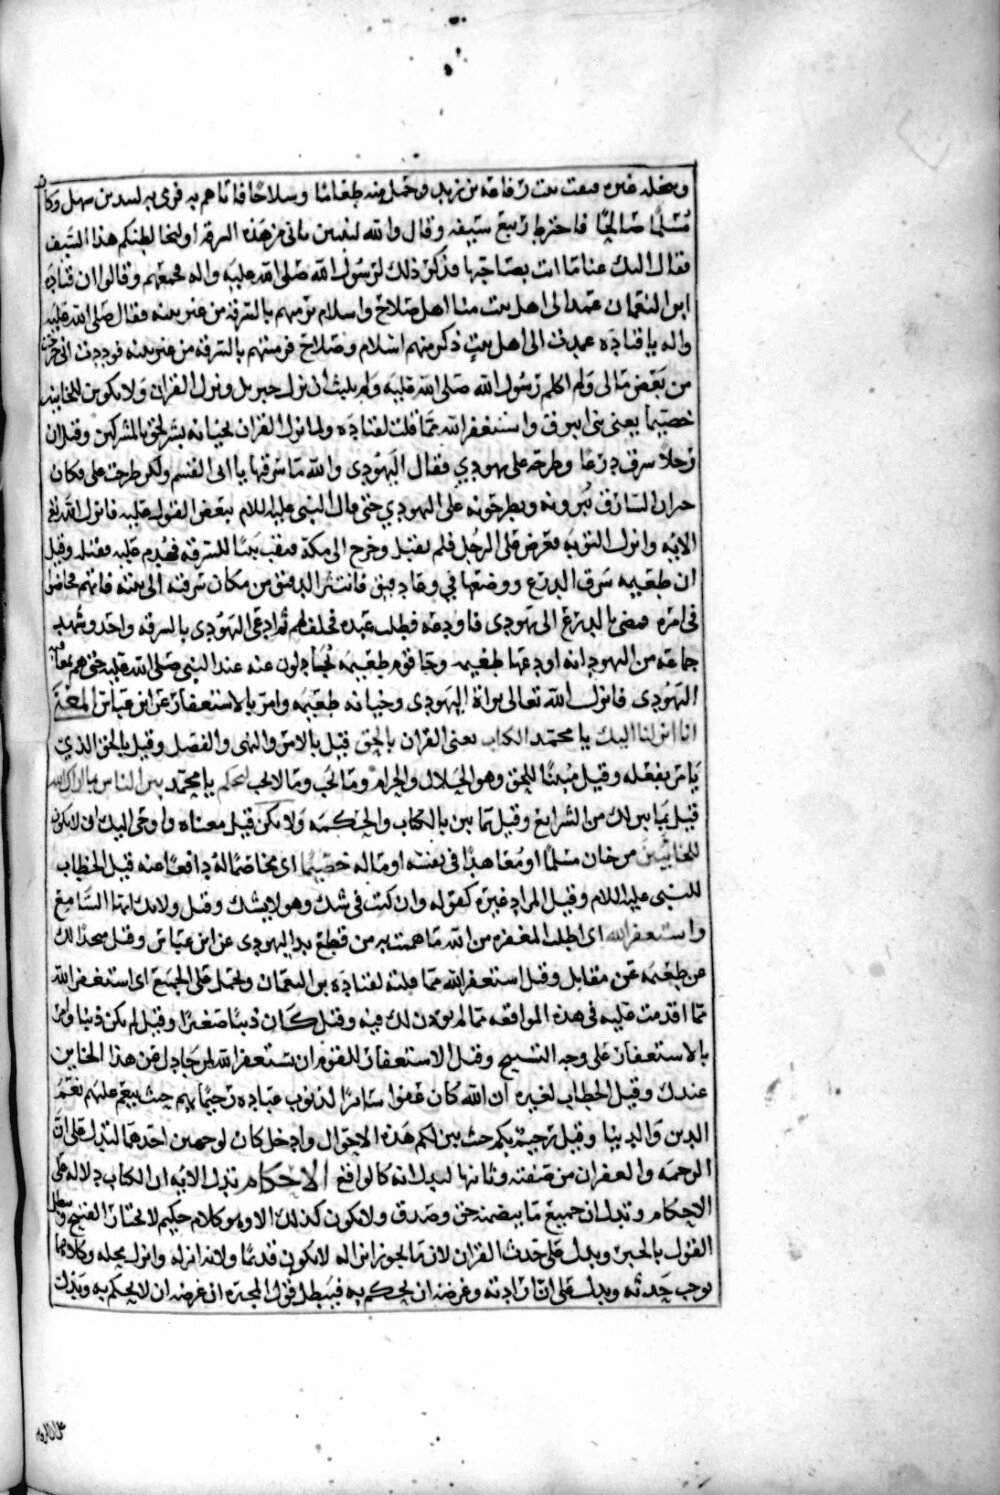 وينحله غيره فنقب بيت رفاعة بن زيد وحمل منه طعاما وسلاحا فاتاهم به فرمي به لبيد بن سهل وكا
مسلما صالحا فاخترط ربيع سيفه وقال والله لتبين ما في هذه السرقة او ليخالطنكم هذا السيف
فقال اليك عنا ما انت بصاحبها فذكر ذلك لرسول الله صلى الله عليه واله فجمعهم وقالوا ان قتادة
ابن النعمان عمد الى اهل بيت منا اهل صلاح واسلام يرميهم بالسرقة من غير بينة فقال صلى الله عليه
واله يا قتادة عمدت الى اهل بيت ذكر منهم اسلام وصلاح فرميتهم بالسرقة من غير بينة فوددت اني خرجت
من بعض مالي ولم اكلم رسول الله صلى الله عليه ولم يلبث ان نزل جبريل ونزل القران ولا تكن للخاينين
خصيما يعني بني ابيرق واستغفر الله مما قلت لقتادة ولما نزل القران لخيانة بشير لحق بالمشركين وقيل ان
رجلا سرق درعا وطرحه على يهودي فقال اليهودي والله ما سرقتها يا ابا القسم ولكن طرحت علي فكان
جيران السارق يبرونه ويطرحونه على اليهودي حتى مال النبي عليه السلام ببعض القول عليه فانزل الله تع
الاية وانزل التوبة فعرض على الرجل فلم يقبل وخرج الى مكة فنقب بيتا للسرقة فهدم عليه فقتله وقيل
ان طعيمة سرق الدرع ووضعها في وعاء دقيق فانتثر الدقيق من مكان سرقته الى بيته فاتهم فخاضوا
في امره فمضى بالدرع الى يهودي فاودعه فطلب عنده فحلف لهم ثم ادعى اليهودي بالسرقة واخذ وشهد
جماعة من اليهود انه اودعها طعيمه وجا قوم طعيمه يجادلون عنه عند النبي صلى الله عليه حتى هم بعقاب
اليهودي فانزل الله تعالى براة اليهودي وخيانة طعيمه وامر بالاستغفار عن ابن عباس المعنى
انا انزلنا اليك يا محمد الكتاب يعني القران بالحق قيل بالامر والنهي والفصل وقيل بالحق الذي
يامر بفعله وقيل مبينا للحق وهو الحلال والحرام وما يحب وما لا يحب لتحكم يا محمد بين الناس بما اراك الله
قيل بما بين لك من الشرايع وقيل بما بين بالكتاب والحكمه ولا تكن قيل معناه واوحى اليك ان لا تكون
للخاينين من خان مسلما او معاهدا في نفسه او ماله خصيما اي مخاصما له دافعا عنه قيل الخطاب
للنبي عليه السلام وقيل المراد غيره كقوله وان كنت في شك وهو لا يشك وقيل ولا تك ايها السامع
واستغفر الله اي اطلب المغفرة من الله ما هممت به من قطع يد اليهودي عن ابن عباس وقيل بجدالك
عن طعيمه عن مقاتل وقيل استغفر الله مما قلته لقتادة بن النعمان ويحمل على الجميع اي استغفر الله
مما اقدمت عليه في هذه المواقعه مما لم يوذن لك فيه وقيل كان ذنبا صغيرا وقيل لم يكن ذنبا وامر
بالاستغفار على وجه التسبيح وقيل الاستغفار للقوم ان تستغفر الله لمن جادل عن هذا الخاين
عندك وقيل الخطاب لغيره ان الله كان غفورا ساترا لذنوب عباده رحيما بهم حيث ينعم عليهم نعم
الدين والدنيا وقيل رحيم بكم حيث بين لكم هذه الاحوال وادخل كان لوجهين احدهما ليدل على ان
الرحمه والغفران من صفته وثانيها ليدل انه كالواقع الاحكام تدل الاية ان الكتاب دلالة على
الاحكام وتدل ان جميع ما يتضمنه حق وصدق ولا يكون كذلك الا وهو كلام حكيم لا يختار القبيح ويبطل
القول بالجبر ويدل على حدث القران لان ما يجوز انزاله لا يكون قديما ولانه انزله وانزل محله وكلاهما
يوجب حدثه ويدل على ان ارادته وغرضه ان يحكم به فيبطل قول المجبرة ان غرضه ان لا يحكم به ويدل